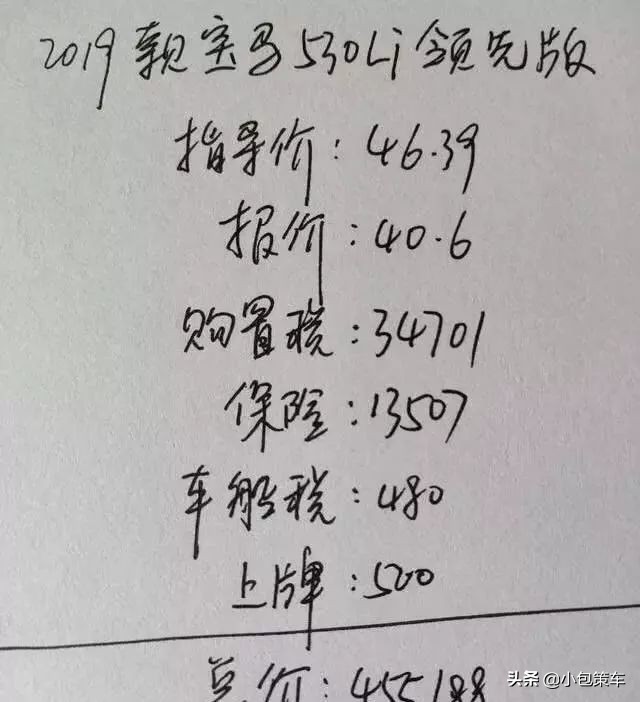 2019款宝马530Li领先版
指导价:46.39
报价:40.6
购置税:34701
保险:13507
车船税:480
上牌:500
总价:455188
头条 @小包策车